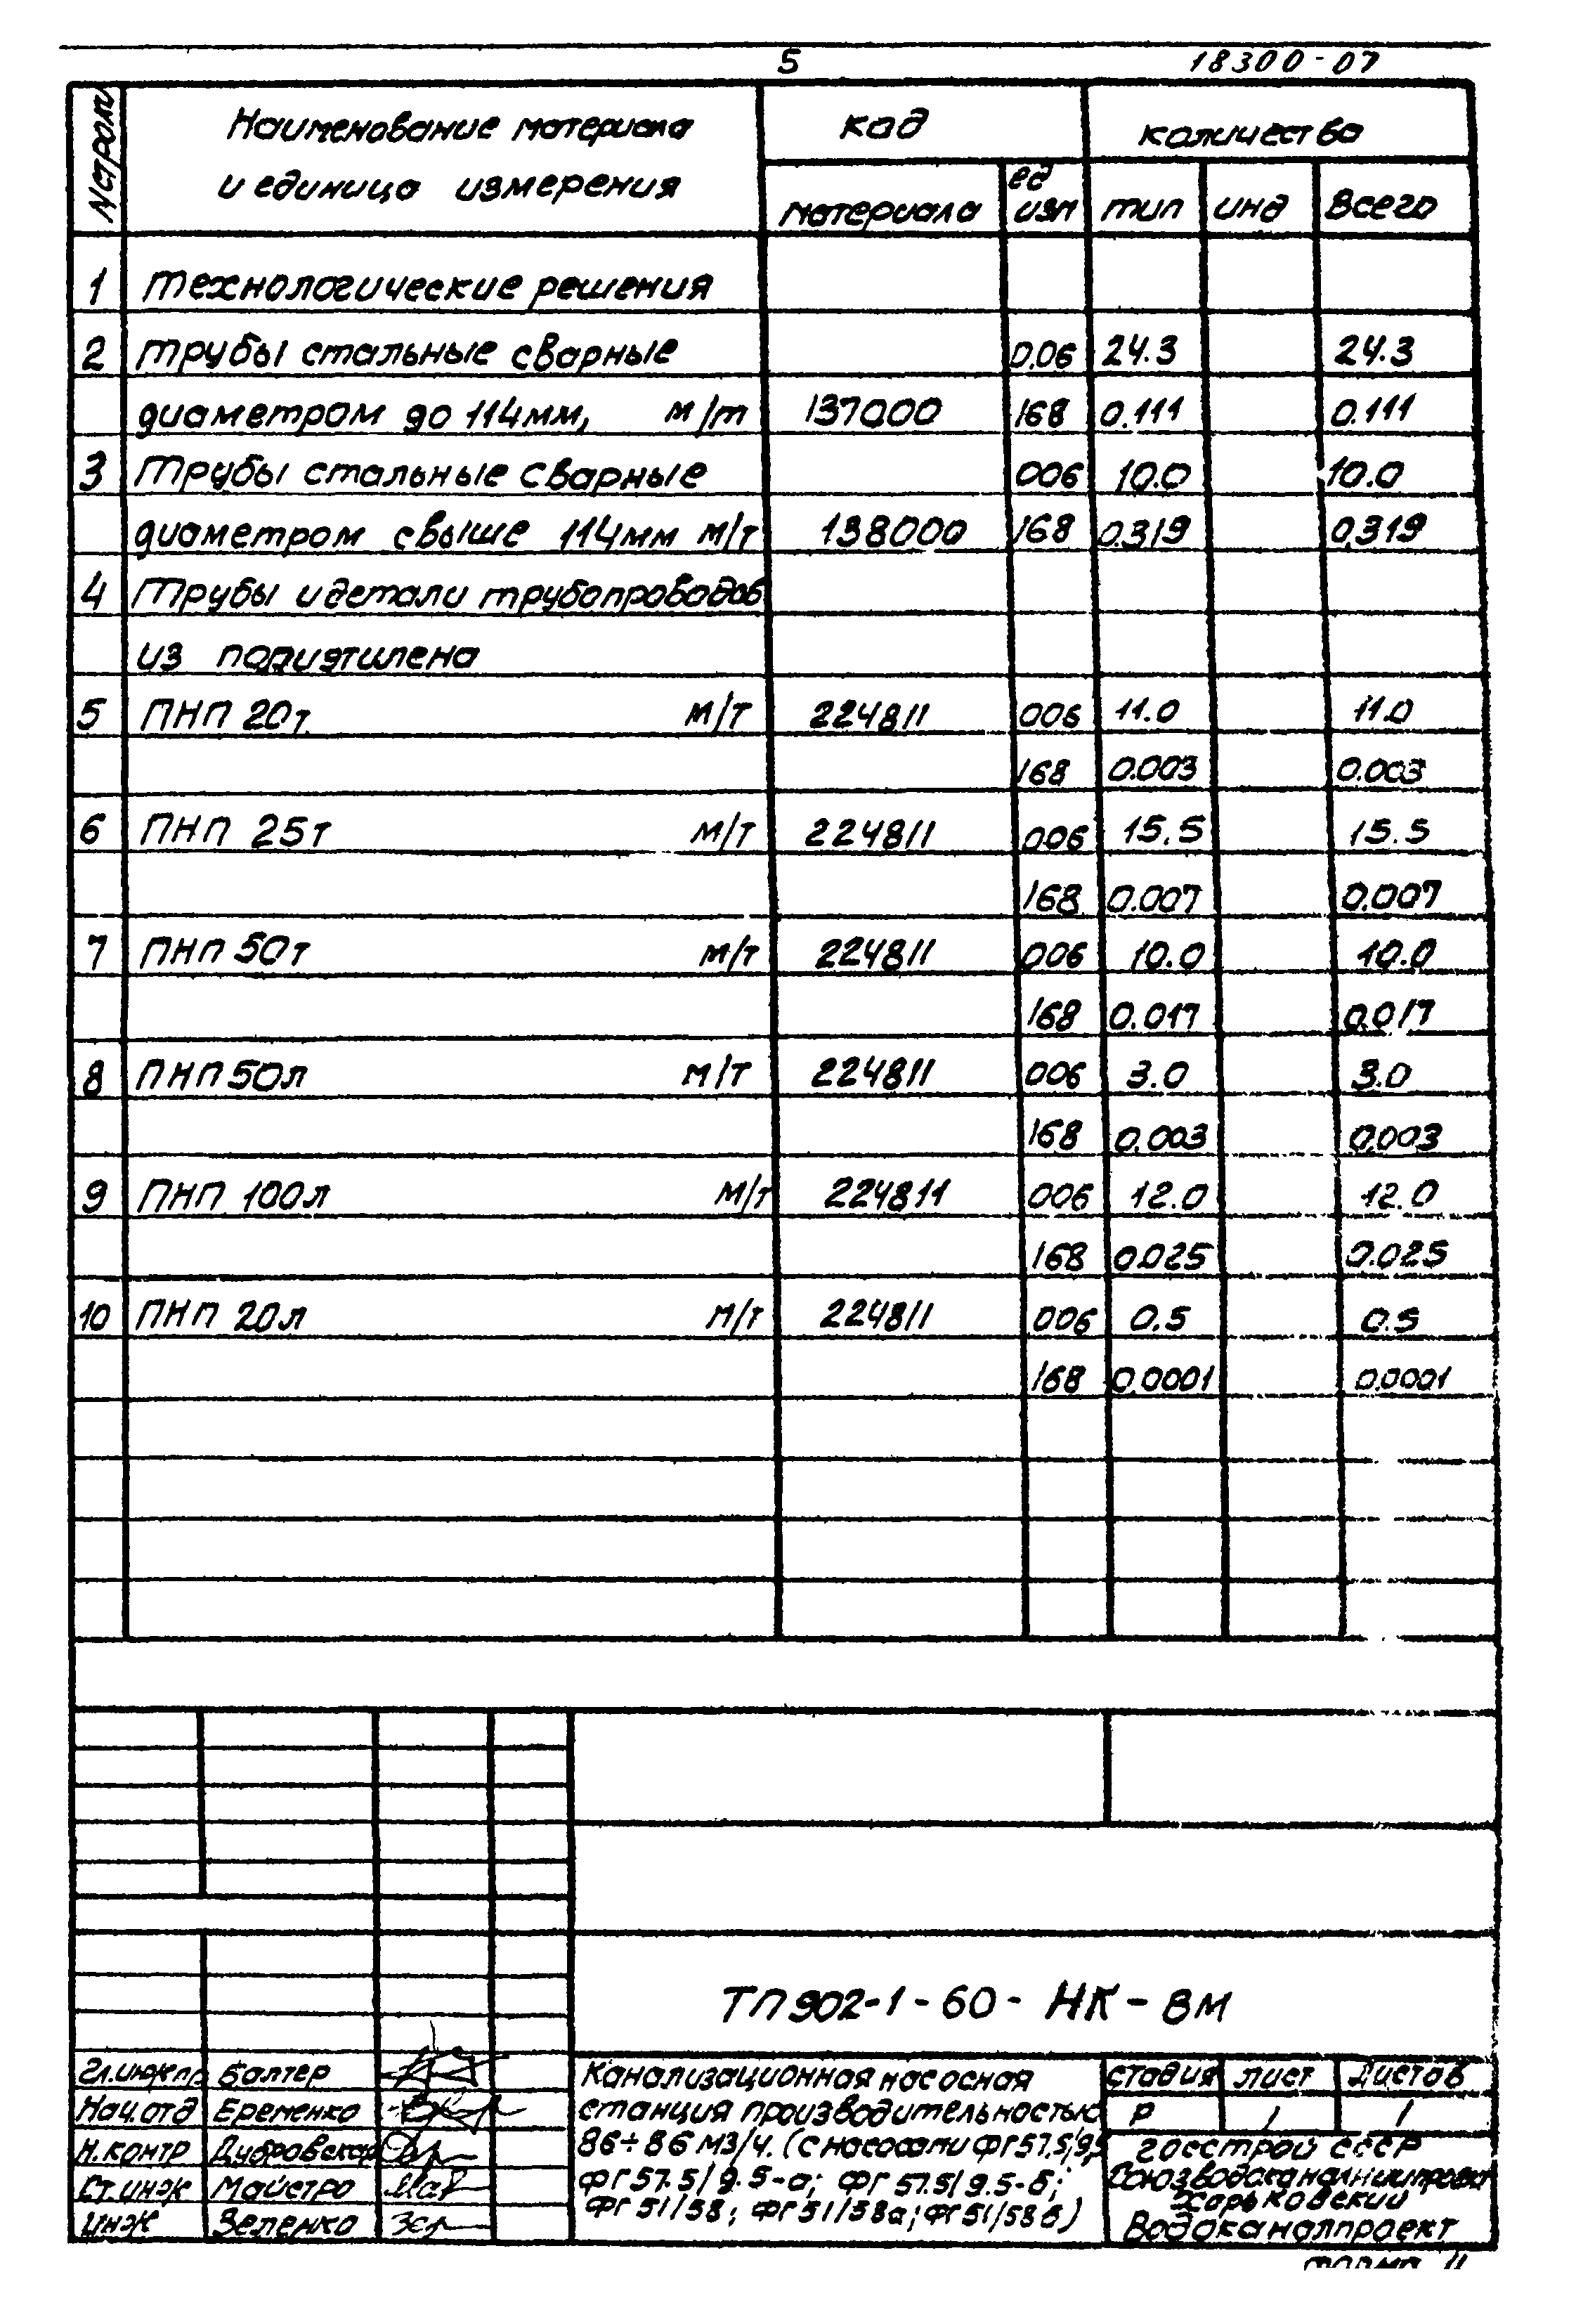 5 18300-07
N строк Наименование материала код количество
и единица измерения материала ед изм тип инд всего
1 технологические решения
2 трубы стальные сварные 0.06 24.3 24.3
диаметром до 114мм, м/т 137000 168 0.111 0.111
3 трубы стальные сварные 006 10.0 10.0
диаметром свыше 114мм м/т 138000 168 0.319 0.319
4 трубы и детали трубопроводов
из полиэтилена
5 ПНП 20т. м/т 224811 006 11.0 11.0
168 0.003 0.003
6 ПНП 25т м/т 224811 006 15.5 15.5
168 0.007 0.007
7 ПНП 50т м/т 224811 006 10.0 10.0
168 0.017 0.017
8 ПНП 50л м/т 224811 006 3.0 3.0
168 0.003 0.003
9 ПНП 100л м/т 224811 006 12.0 12.0
168 0.025 0.025
10 ПНП 20л м/т 224811 006 0.5 0.5
168 0.0001 0.0001
ТП902-1-60-НК-ВМ
Гл.инж пр Балтер
Нач.отд Еременко
Н.контр Дубровская
Ст.инж Майстро
инж Зеленко
Канализационная насосная
станция производительностью
86÷86 м3/ч. (с насосами ФГ57.5/9.5
ФГ57.5/9.5-а; ФГ 57.5/9.5-б;
ФГ 51/58; ФГ51/58а; ФГ51/58б)
стадия лист листов
Р 1 1
госстрой СССР
Союзводоканалниипроект
Харьковский
Водоканалпроект
форма 11